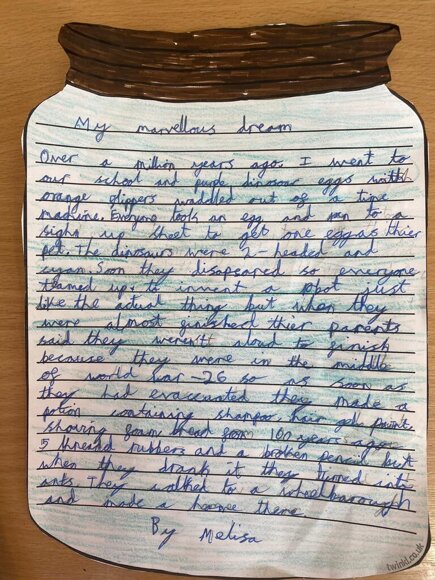 My marvellous dream
Over a million years ago. I went to
our school and purple dinosour eggs with
orange flippers waddled out of a time
machine. Everyone took an egg and ran to a
sighn up sheet to get one egg as thier
pet. The dinosours were 2-headed and
cyan. Soon they disapeared so everyone
teamed up to invent a robot just
like the actual thing but when they
were almost finished thier parents
said they weren't aloud to finish
because they were in the middle
of world war-26 so as soon as
they had evaccuated they made a
potion containing shampoo, hair gel, paint,
shaving foam, bread from 100 years ago
5 thread rubbers and a broken pencil but
when they drank it they turned into
ants. They walked to a wheelbarough
and made a home there.
By Melisa
twinkl.co.uk